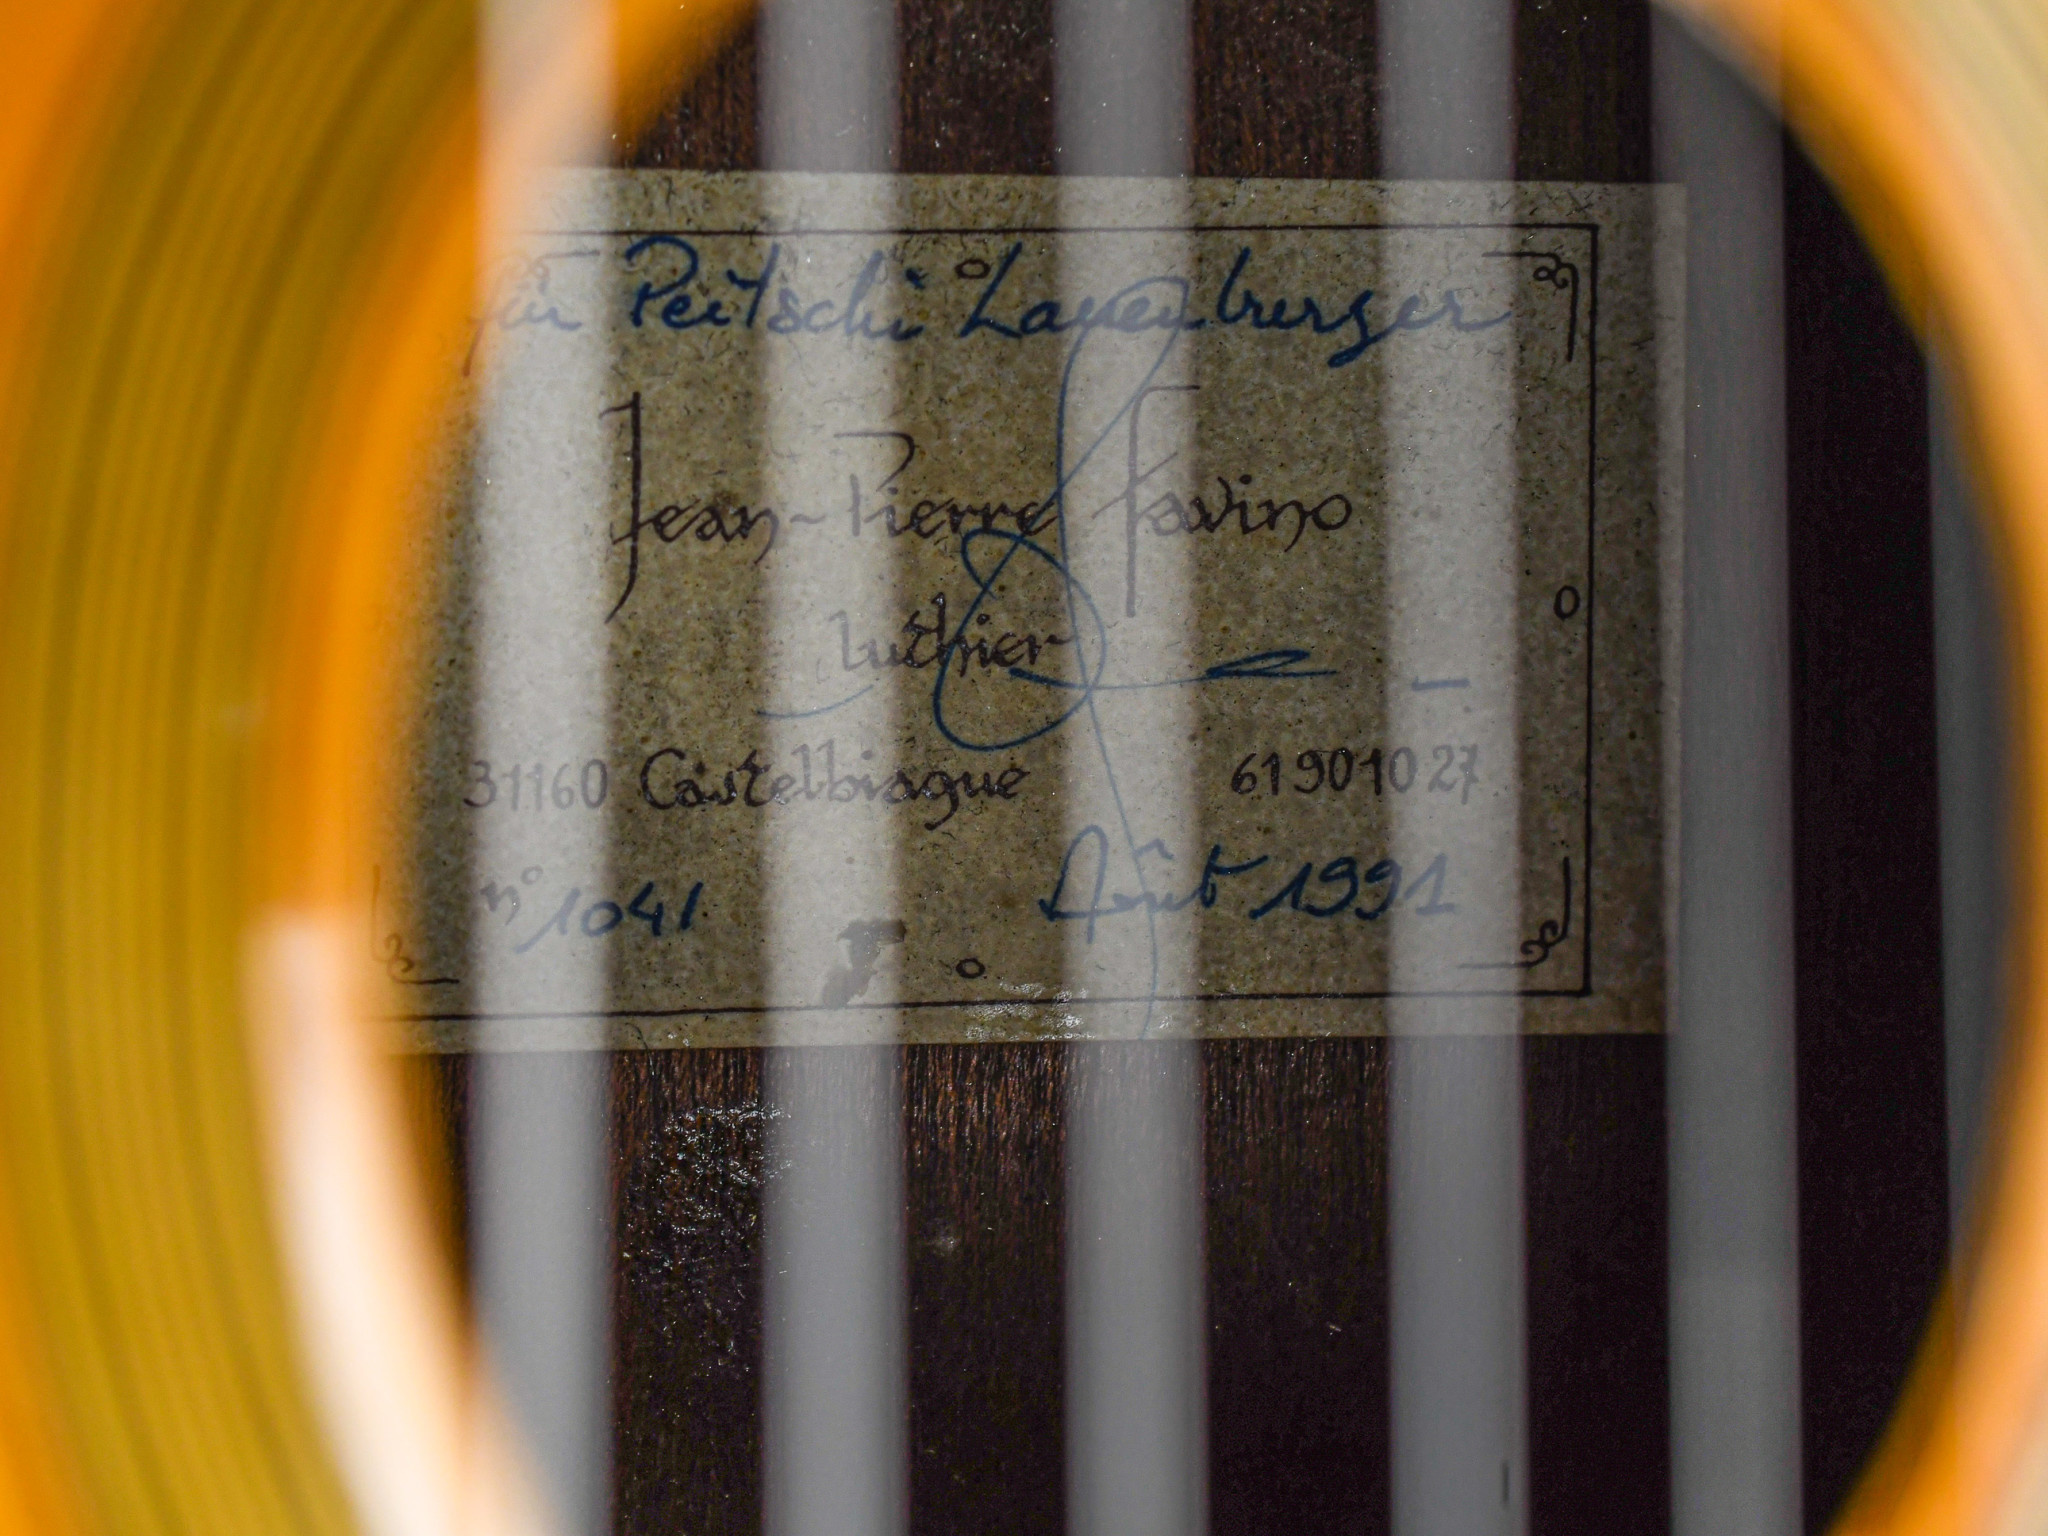 für Peitschi Lauenburger
Jean-Pierre Favino
Luthier
31160 Castelbiague 61901027
n° 1041 Août 1991